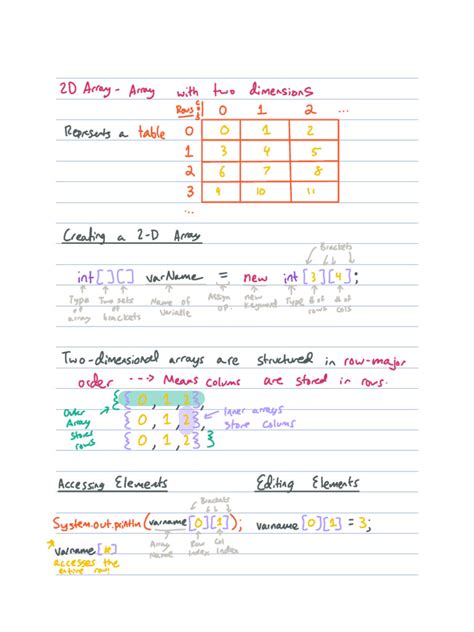 2D Array - Array with two dimensions
Rows Cols 0 1 2 ...
Represents a table 0 0 1 2
1 3 4 5
2 6 7 8
3 9 10 11
...
Creating a 2-D Array
Brackets
int[][] varName = new int[3][4];
Type of array
Two sets of brackets
Name of Variable
Assgn op.
new keyword
Type
# of rows
# of cols
Two-dimensional arrays are structured in row-major
order ---> Means colums are stored in rows.
{{0,1,2},
{0,1,2},
{0,1,2}}
Outer Array stores rows
Inner arrays store colums
Accessing Elements
Editing Elements
Brackets
System.out.println(varname[0][1]);
varname[0][1] = 3;
Array Name
Row Index
Col Index
varname
accesses the entire row!